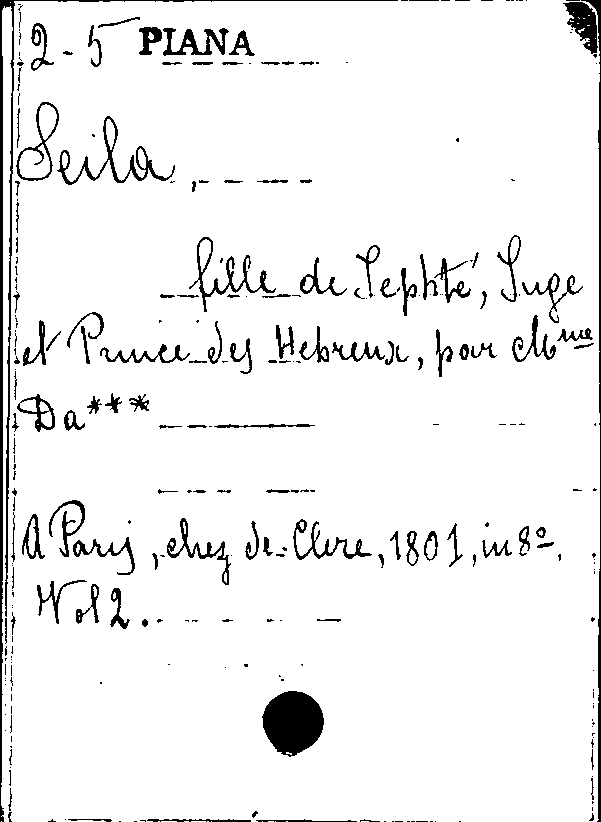 2-5 PIANA
Seila,
fille de Jephté, Juge
et Prince des Hebreux, par Mme
Da***
A Paris, chez de Clere, 1801, in 8º,
Vol 2.